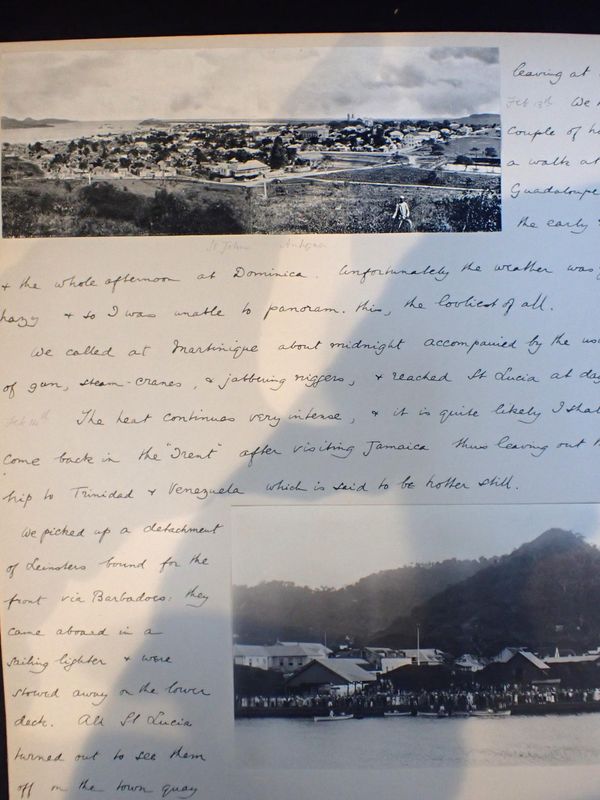 leaving at
Feb 13th We
couple of h
a walk at
Guadaloupe
the early
St John Antigua
& the whole afternoon at Dominica. Unfortunately the weather was
hazy & so I was unable to panoram. this, the lovliest of all.
We called at Martinique about midnight accompanied by the us
of gun, steam-cranes, & jabbering niggers, & reached St Lucia at day
Feb 14th The heat continues very intense, & it is quite likely I shal
come back in the "Trent" after visiting Jamaica thus leaving out
trip to Trinidad & Venezuela which is said to be hotter still.
We picked up a detachment
of Leinsters bound for the
front via Barbados: they
came aboard in a
sailing lighter & were
stowed away on the lower
deck. All St Lucia
turned out to see them
off on the town quay